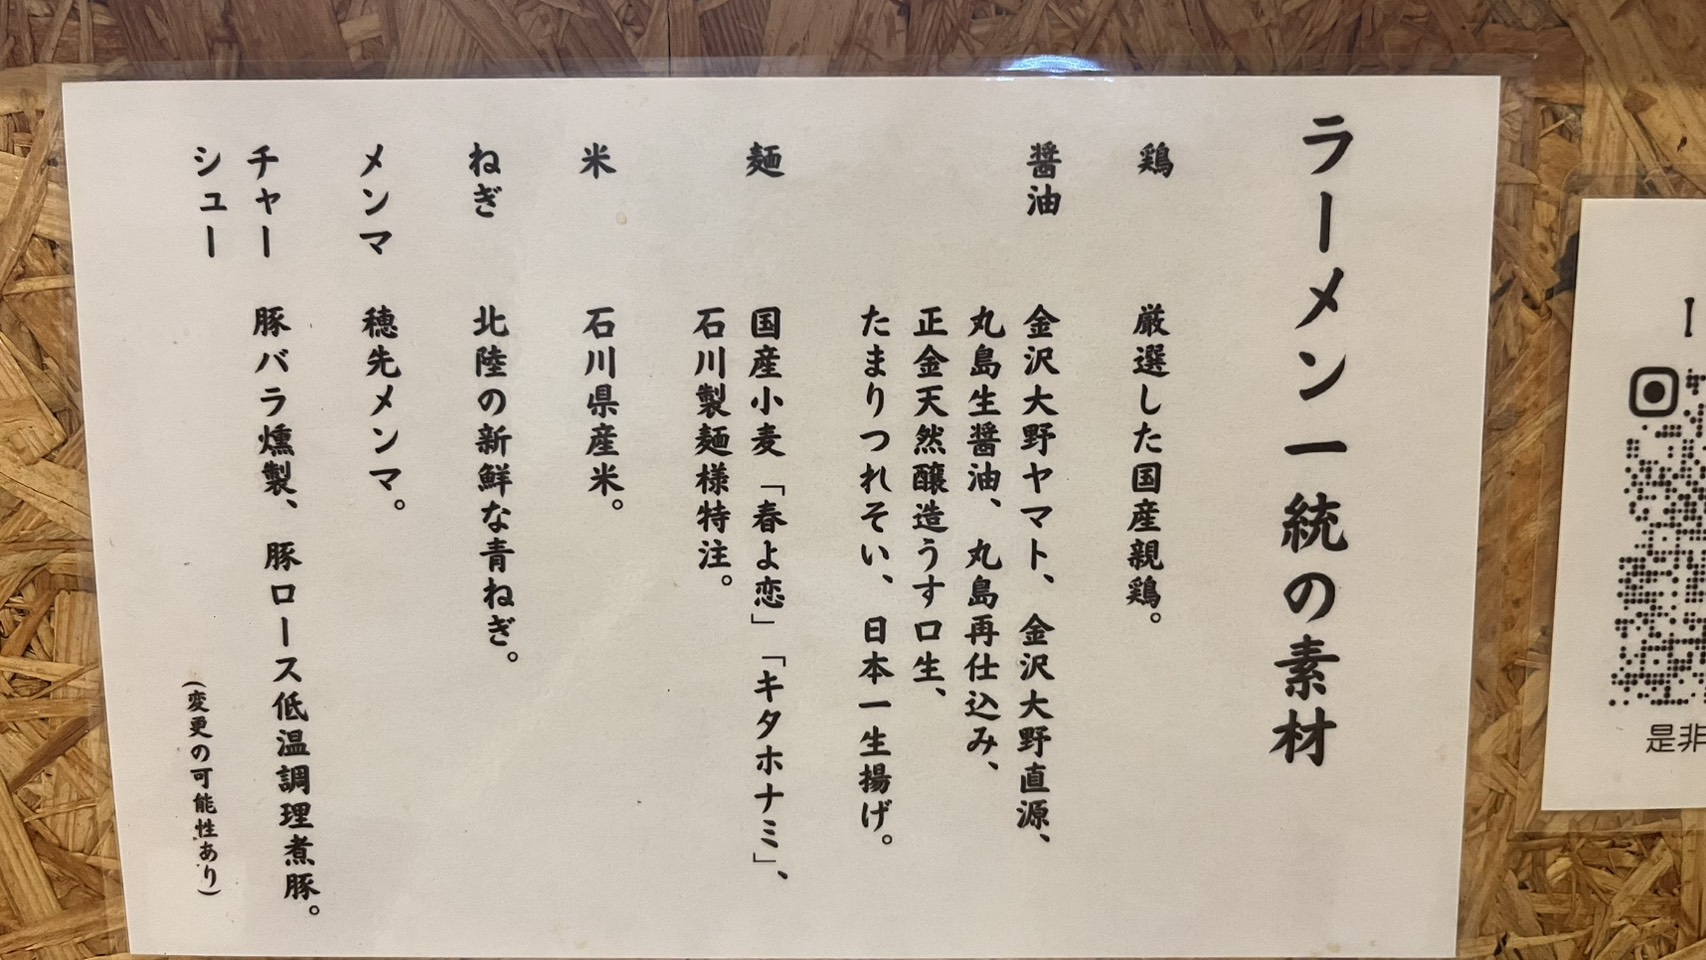 ラーメン一統の素材
鶏　厳選した国産親鶏。
醤油　金沢大野ヤマト、金沢大野直源、
丸島生醤油、丸島再仕込み、
正金天然醸造うす口生、
たまりつれそい、日本一生揚げ。
麺　国産小麦「春よ恋」「キタホナミ」、
石川製麺様特注。
米　石川県産米。
ねぎ　北陸の新鮮な青ねぎ。
メンマ　穂先メンマ。
チャー　豚バラ燻製、豚ロース低温調理煮豚。
シュー　(変更の可能性あり)
是非